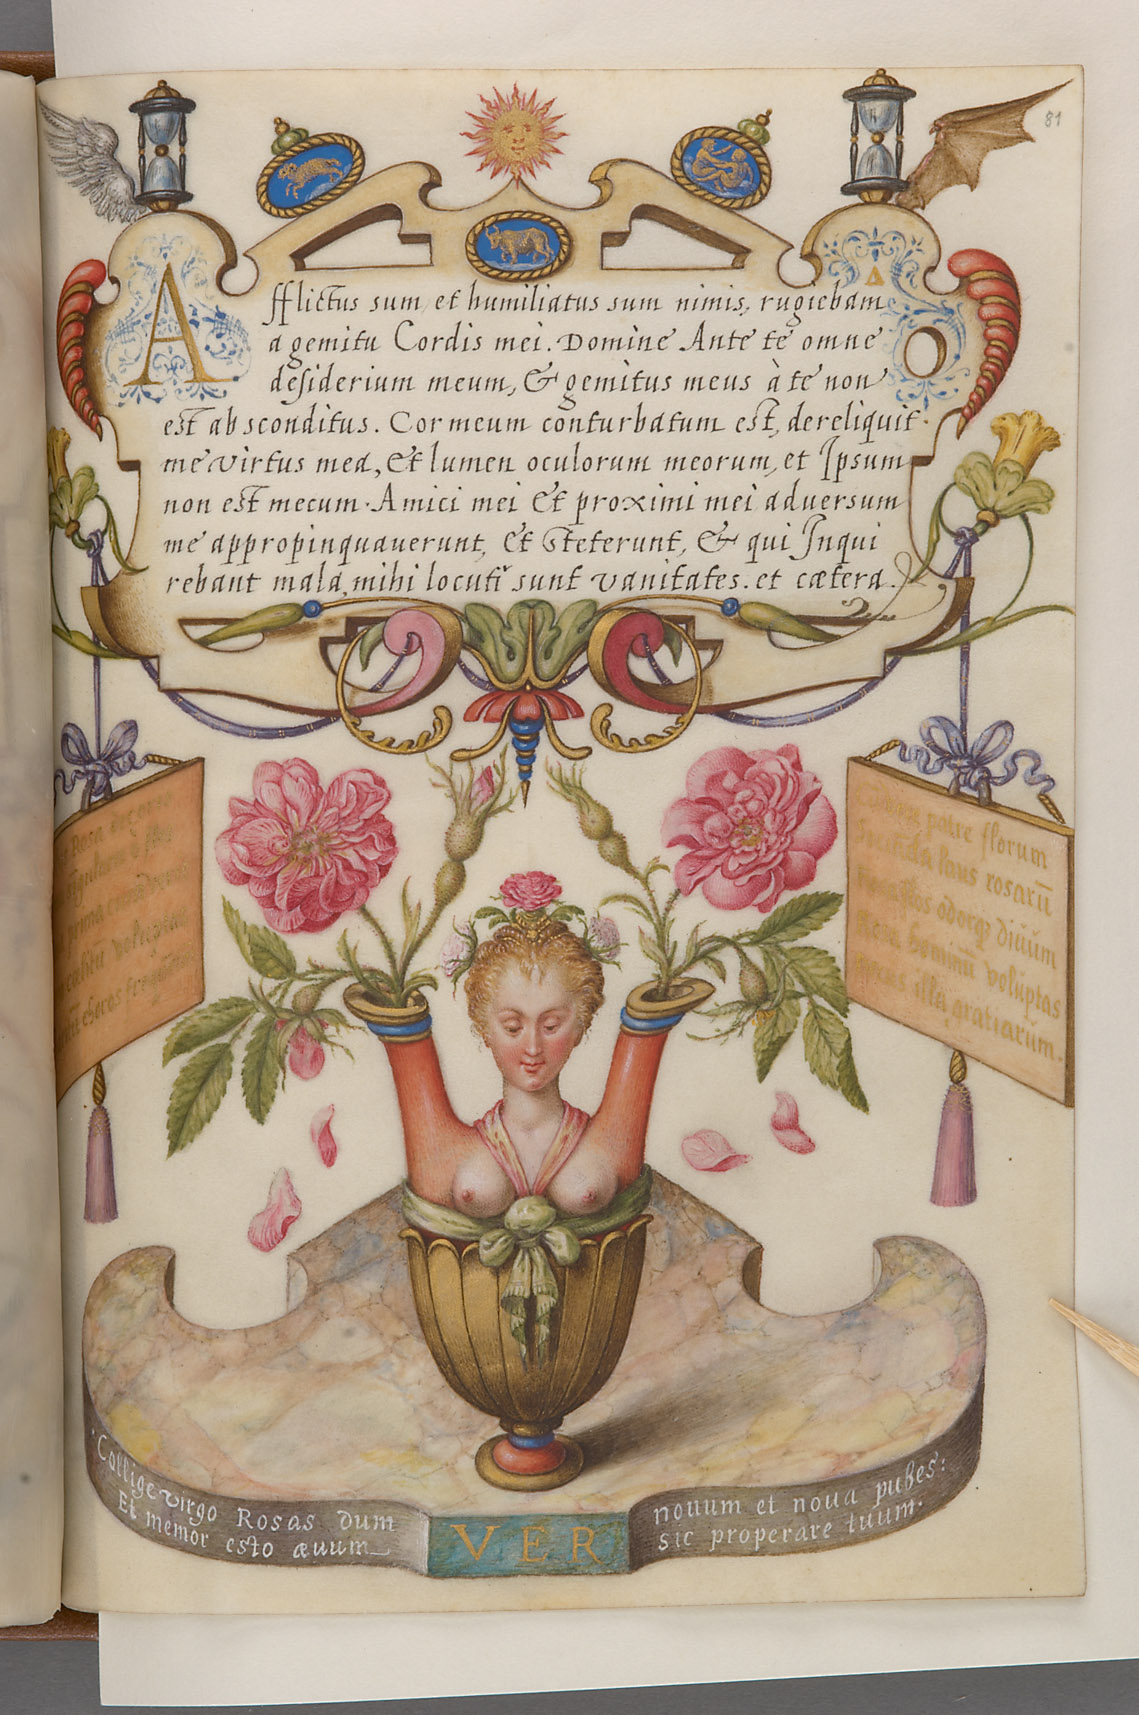 81
Afflictus sum, et humiliatus sum nimis, rugiebam
a gemitu Cordis mei. Domine Ante te omne
desiderium meum, & gemitus meus à te non
est absconditus. Cor meum conturbatum est, dereliquit
me virtus mea, Et lumen oculorum meorum, et Ipsum
non est mecum. Amici mei Et proximi mei aduersum
me appropinquauerunt, Et steterunt, & qui Inqui
rebant mala, mihi locuti sunt vanitates. et cætera.
A
O
Rosa
prima
voluptas
patre florum
laus rosarū
odorq; diuūm
hominū voluptas
illa gratiarum.
Collige virgo Rosas dum nouum et noua pubes:
Et memor esto æuum sic properare tuum.
VER